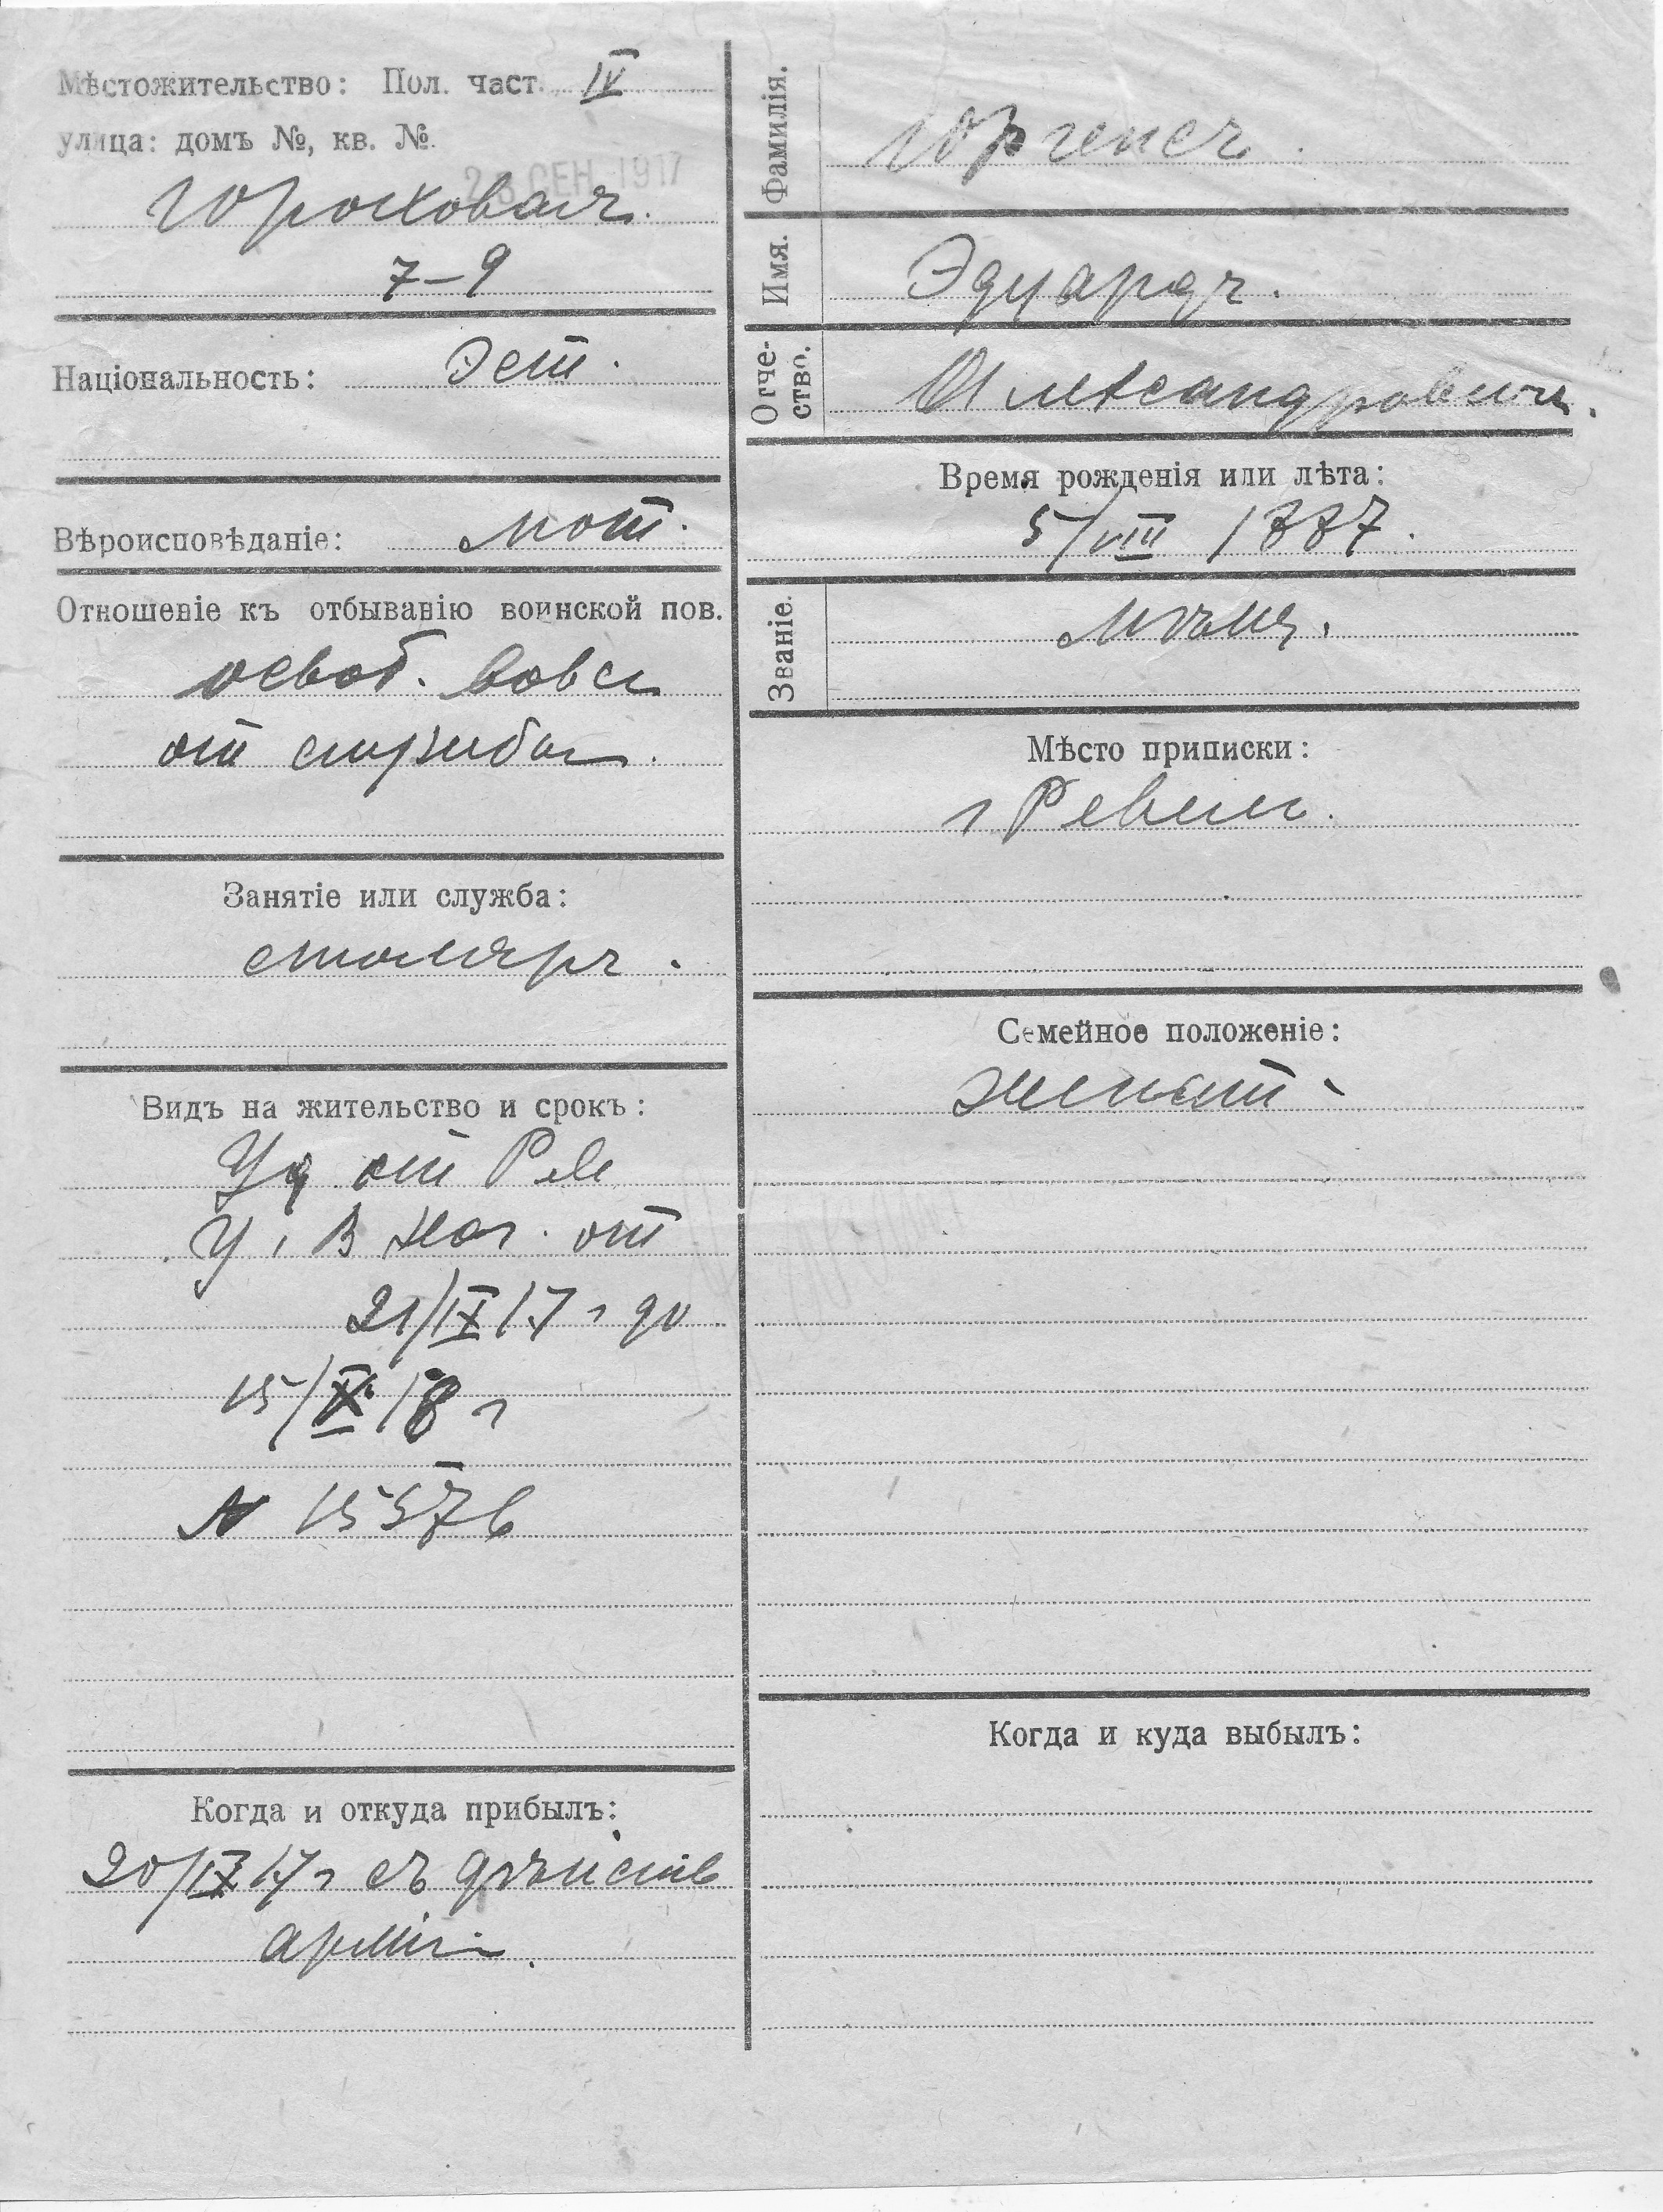 Мѣстожительство: Пол. част. IV
улица: домъ №, кв. №.
28 СЕН. 1917
Гороховая
7–9
Національность: Эст.
Вѣроисповѣданіе: лют.
Отношеніе къ отбыванію воинской пов.
освоб. вовсе
от службы.
Занятіе или служба:
столяръ.
Видъ на жительство и срокъ:
Уд от Рев
У. В Нач. от
21/IX 17 г до
15/ 18 г
N 15576
Когда и откуда прибылъ:
20/IX 17 г съ дѣйств
арміи.
Фамилія. Юргенсъ.
Имя. Эдуардъ.
Отчество. Александровичъ.
Время рожденія или лѣта:
5/VIII 1887.
Званіе. мѣщ.
Мѣсто приписки:
г Ревель.
Семейное положеніе:
женат
Когда и куда выбылъ: